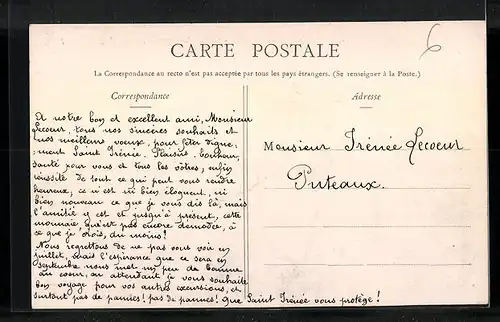 6
CARTE POSTALE
La Correspondance au recto n'est pas acceptée par tous les pays étrangers. (Se renseigner à la Poste.)
Correspondance
A notre bon et excellent ami, Monsieur
Lecoeur, tous nos sincères souhaits et
nos meilleurs voeux, pour fêter digne-
ment Saint Irénée. Plaisirs, bonheur,
santé pour vous et tous les vôtres, enfin
réussite de tout ce qui peut vous rendre
heureux, ce n'est ni bien éloquent, ni
bien nouveau ce que je vous dis là, mais
l'amitié y est et jusqu'à présent, cette
monnaie n'est pas encore démodée, à
ce que je crois, du moins!
Nous regrettons de ne pas vous voir en
juillet, mais l'espérance que ce sera en
septembre nous met un peu de baume
au coeur, en attendant je vous souhaite
bon voyage pour vos autres excursions, et
surtout pas de pannes! pas de pannes! que Saint Irénée vous protège!
Adresse
Monsieur Irénée Lecoeur
Puteaux.